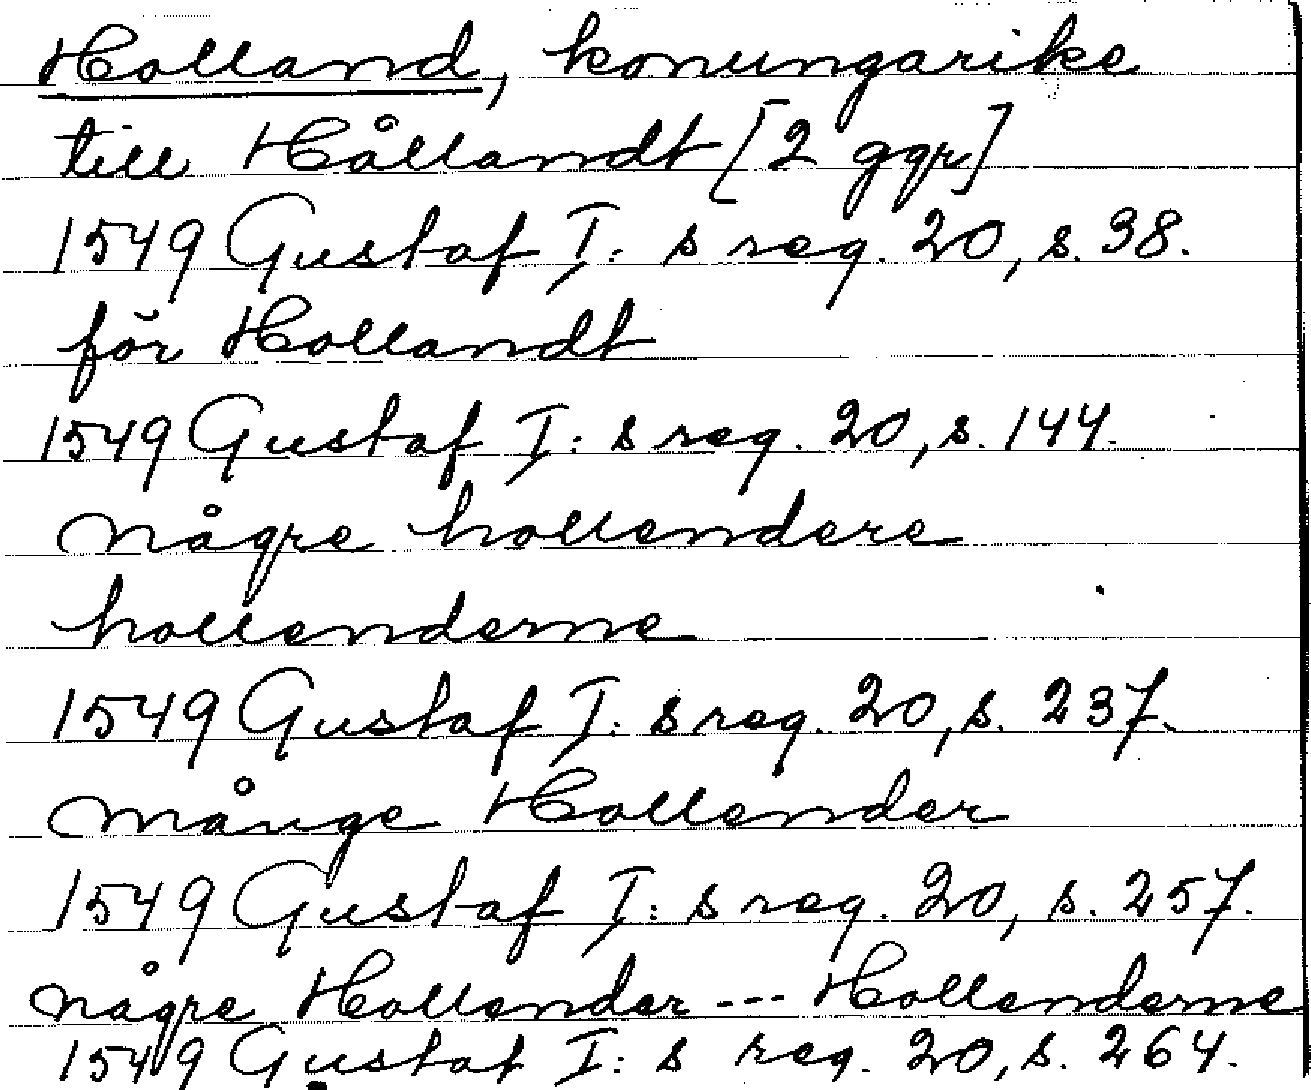 Holland, konungarike
till Hållandt [2 ggr]
1549 Gustaf I: s reg. 20, s. 38.
för Hollandt
1549 Gustaf I: s reg. 20, s. 144.
någre hollendere
hollenderne
1549 Gustaf I: s reg. 20, s. 237.
månge Hollender
1549 Gustaf I: s reg. 20, s. 257.
någre Hollender --- Hollenderne
1549 Gustaf I: s reg. 20, s. 264.